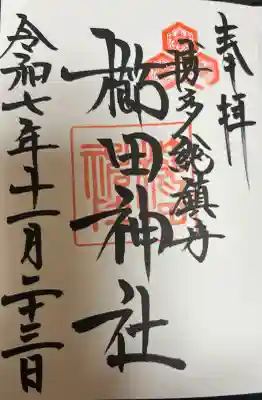 奉拝
博多総鎮守
櫛田神社
令和七年十一月二十三日